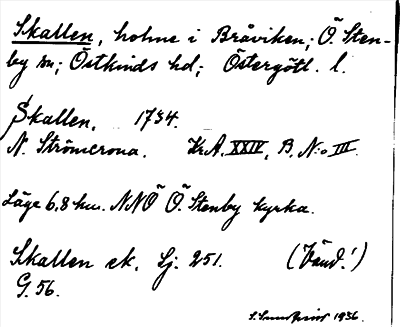 Skallen, holme i Bråviken; Ö. Sten-
by sn; Östkinds hd; Östergötl. l.
Skallen, 1734.
N. Strömcrona. Kr.A. XXIV, B, N:o III.
Läge 6,8 km. NNÖ Ö. Stenby kyrka.
Skallen ek. Lj. 251. (Vänd!)
G. 56.
1936.